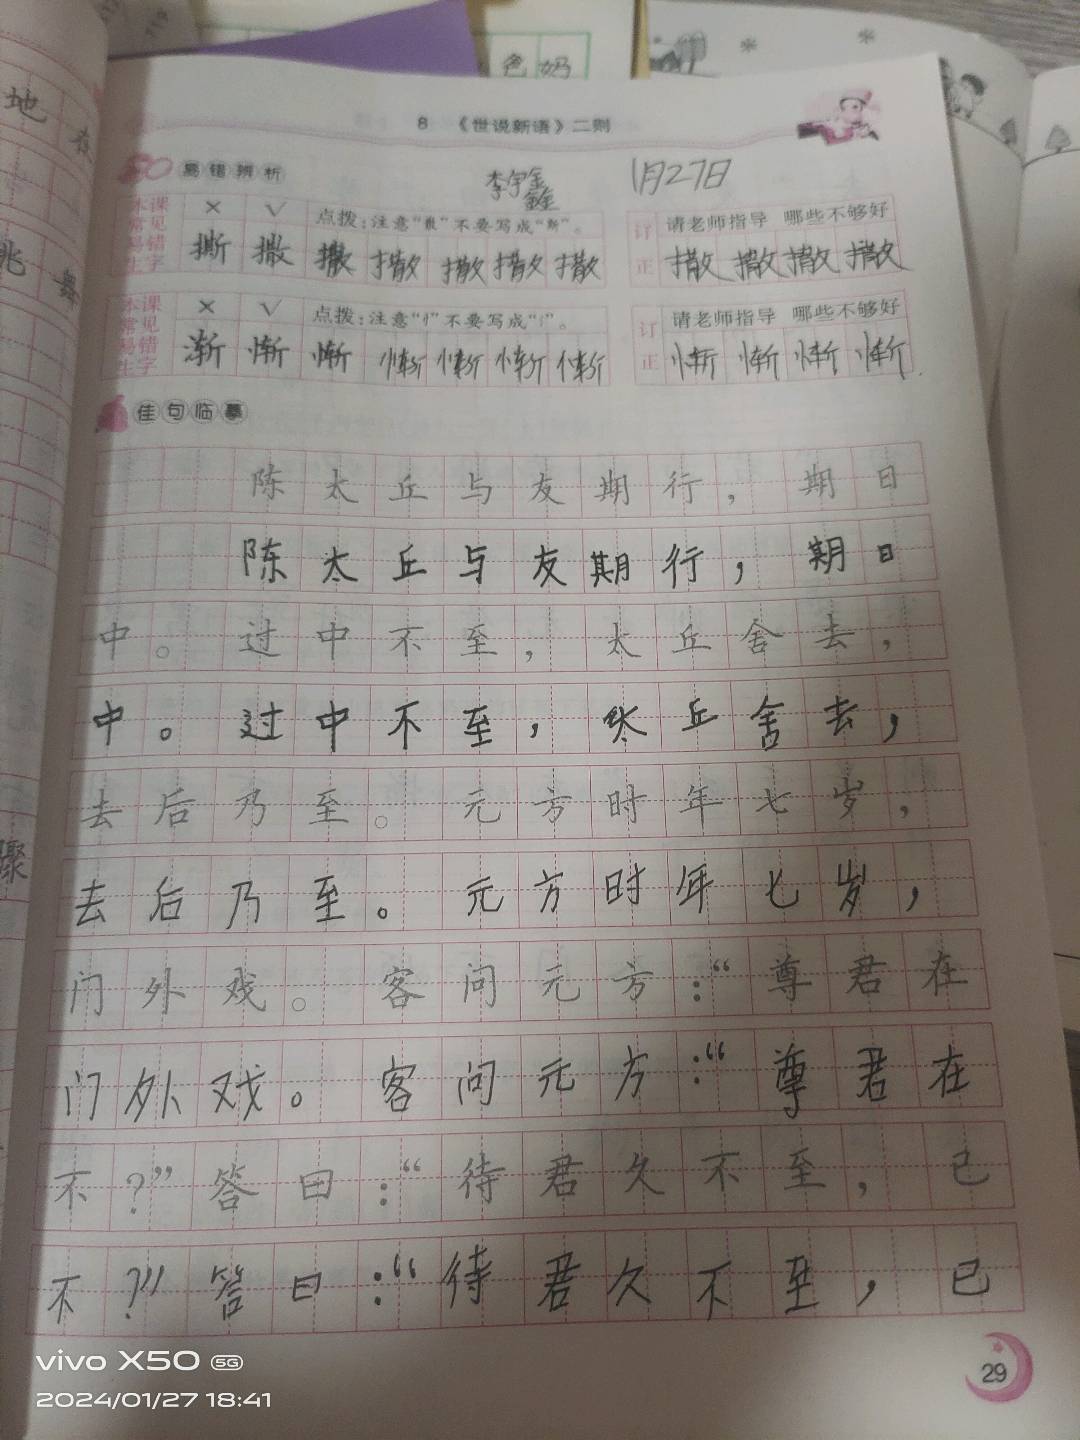 色 妈
地 在
8 《世说新语》二则
易错辨析
李宇鑫
1月27日
本课常见易错生字
× √ 点拨:注意“散”不要写成“斯”。
撕 撒 撒 撒 撒 撒 撒
订正 请老师指导 哪些不够好
撒 撒 撒 撒
兆 舞
本课常见易错生字
× √ 点拨:注意“忄”不要写成“氵”。
渐 惭 惭 惭 惭 惭 惭
订正 请老师指导 哪些不够好
惭 惭 惭 惭
佳句临摹
陈太丘与友期行，期日
陈太丘与友期行，期日
中。过中不至，太丘舍去，
中。过中不至，太丘舍去，
去后乃至。元方时年七岁，
骤
去后乃至。元方时年七岁，
门外戏。客问元方：“尊君在
门外戏。客问元方：“尊君在
不？”答曰：“待君久不至，已
不？”答曰：“待君久不至，已
29
vivo X50 5G
2024/01/27 18:41